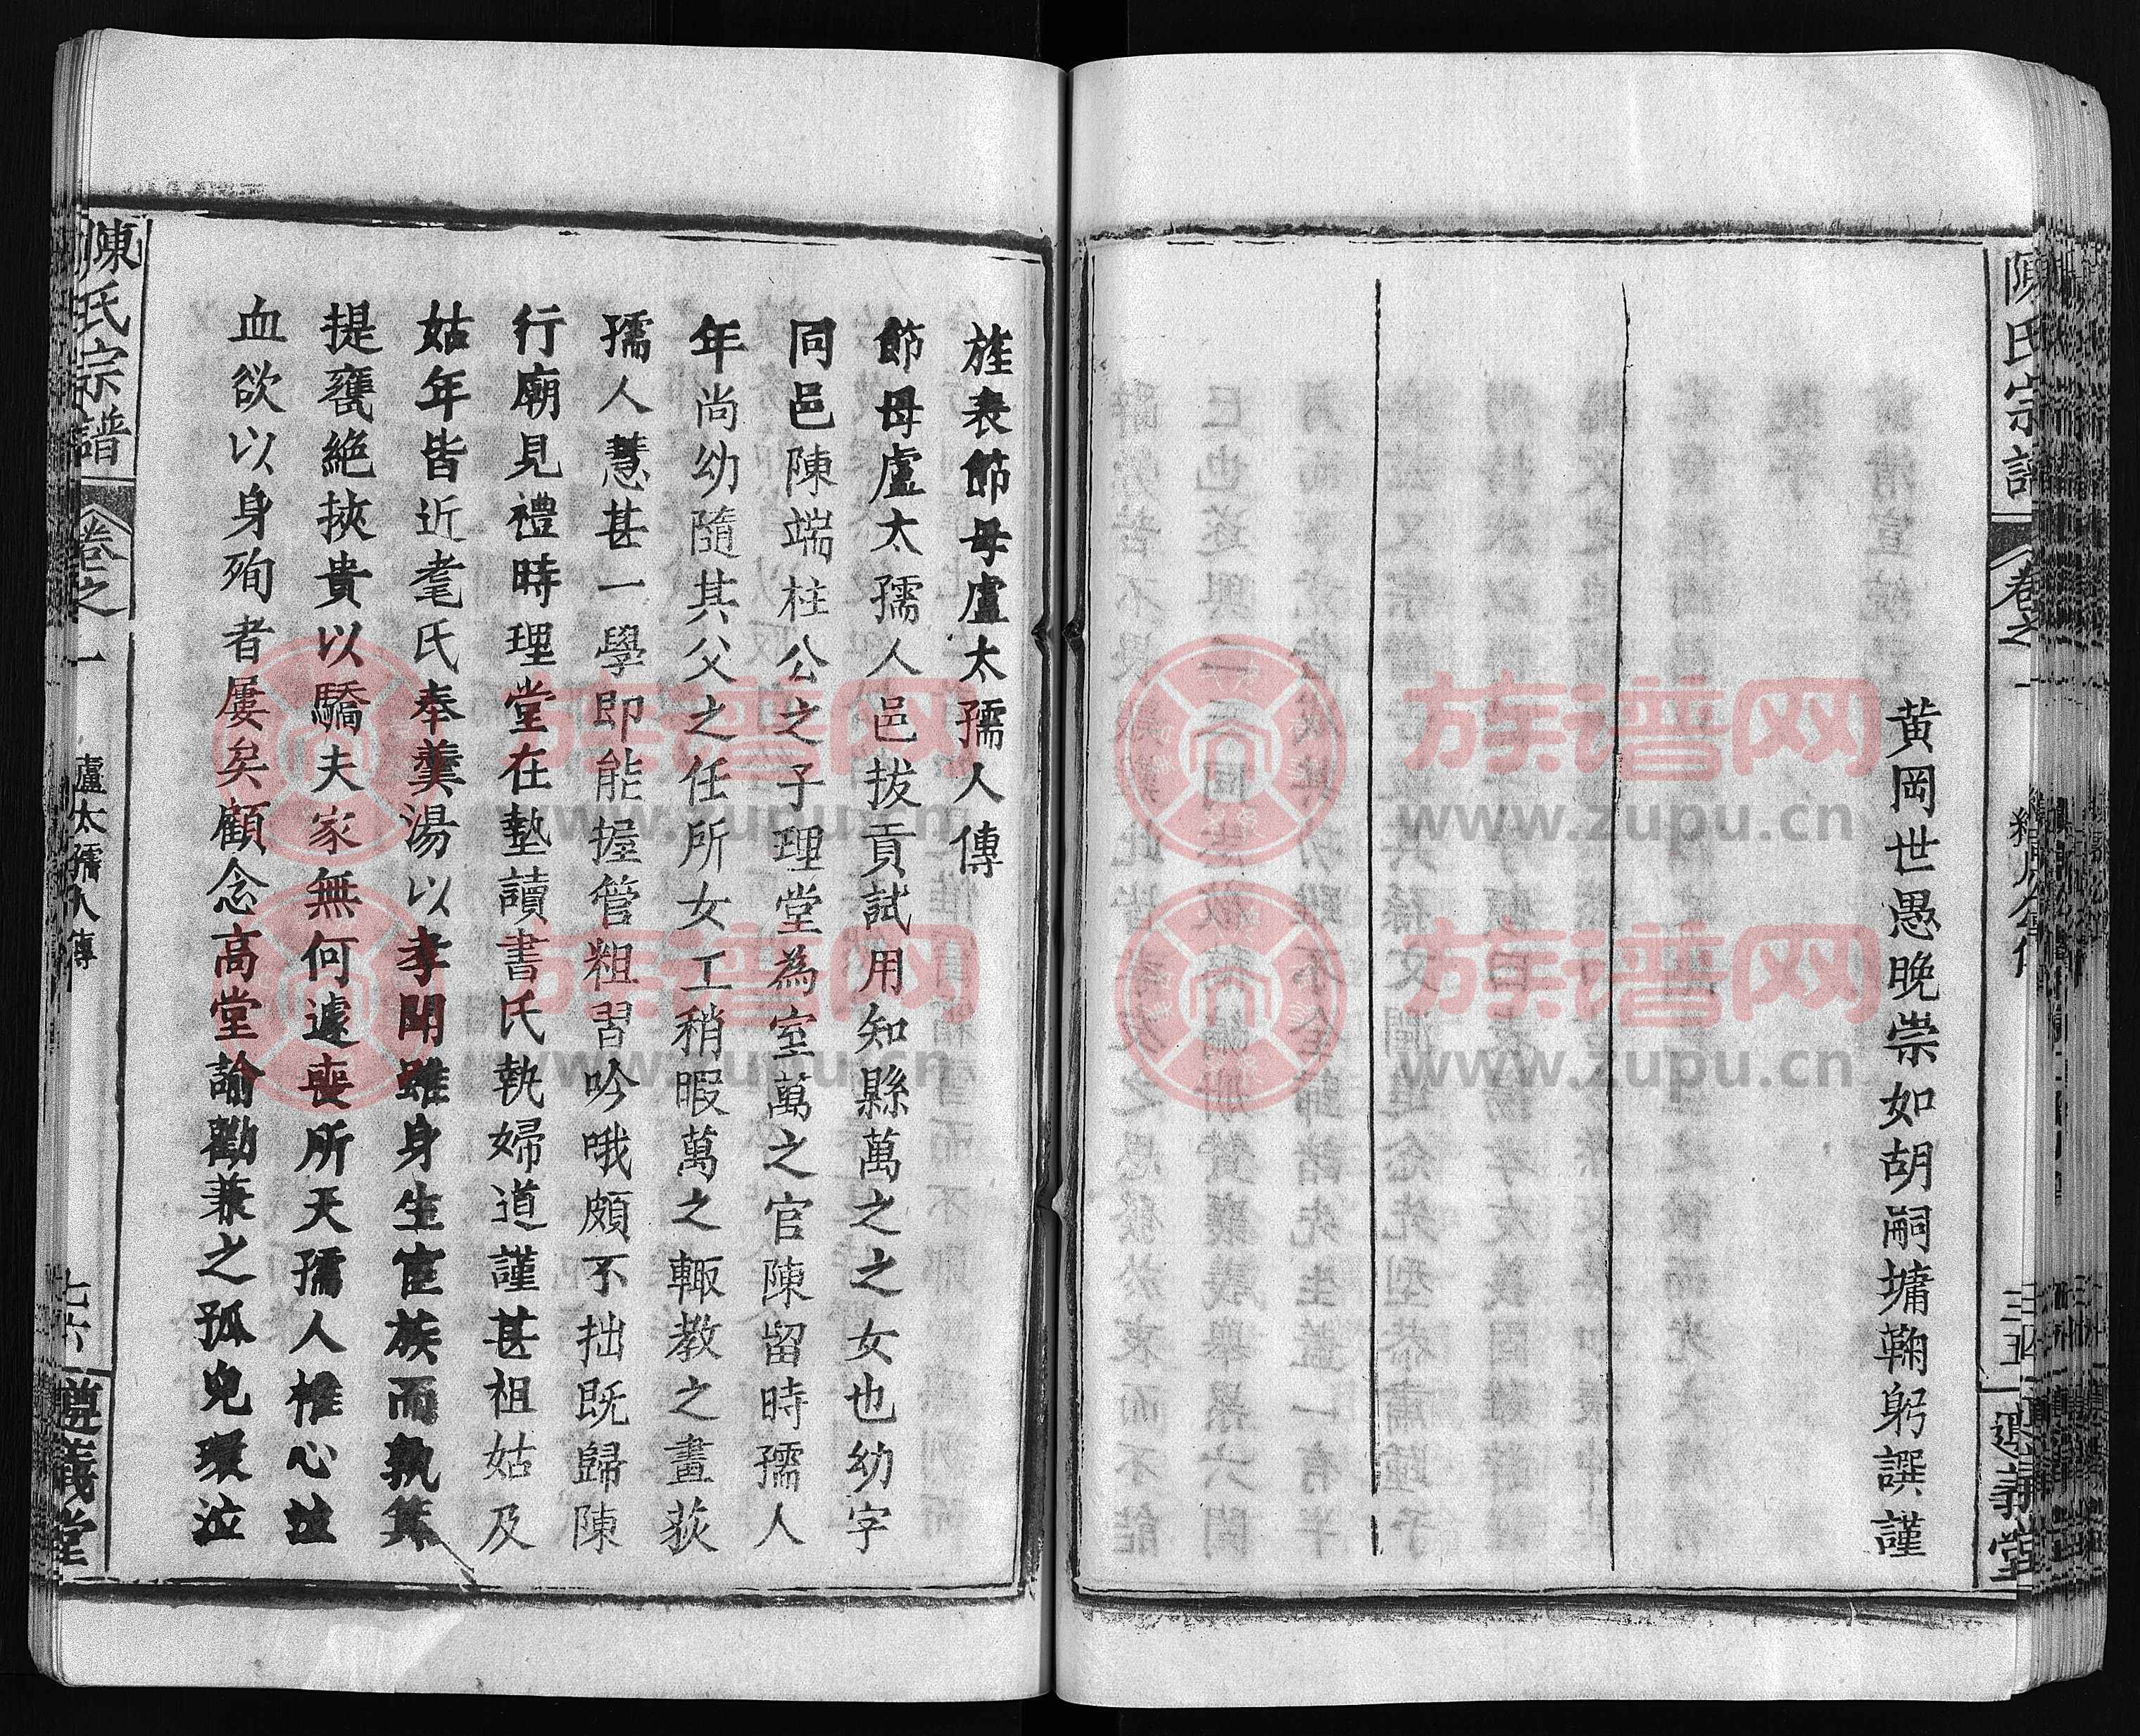 陳氏宗譜
卷之一
三五
黃岡世愚晚崇如胡嗣墉鞠躬譔謹
旌表節母盧太孺人傳
節母盧太孺人邑拔貢試用知縣萬之之女也幼字
同邑陳端柱公之子理堂為室萬之官陳留時孺人
年尚幼隨其父之任所女工稍暇萬之輙教之畫荻
孺人慧甚一學即能握管粗習吟哦頗不拙既歸陳
行廟見禮時理堂在塾讀書氏執婦道謹甚祖姑及
姑年皆近耄氏奉羹湯以孝聞雖身生宦族而執箕
提甕絕挾貴以驕夫家無何遽喪所天孺人椎心泣
血欲以身殉者屢矣顧念高堂諭勸兼之孤兒環泣
陳氏宗譜
卷之一
盧太孺人傳
七六
遵義堂
族谱网
www.zupu.cn
族谱网
www.zupu.cn
族谱网
www.zupu.cn
族谱网
www.zupu.cn